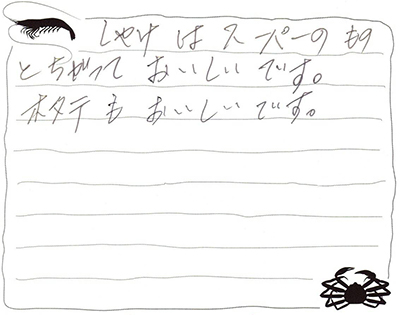 しゃけ は スーパーの もの
と ちがって おいしい です。
ホタテ も おいしい です。